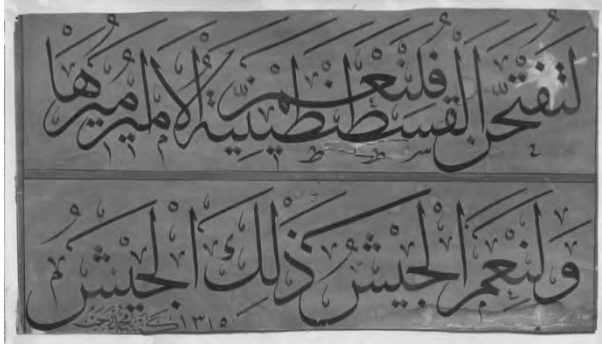 لتفتحن القسطنطينية فلنعم الامير اميرها
ولنعم الجيش ذلك الجيش
كتبه محمد ١٣١٥